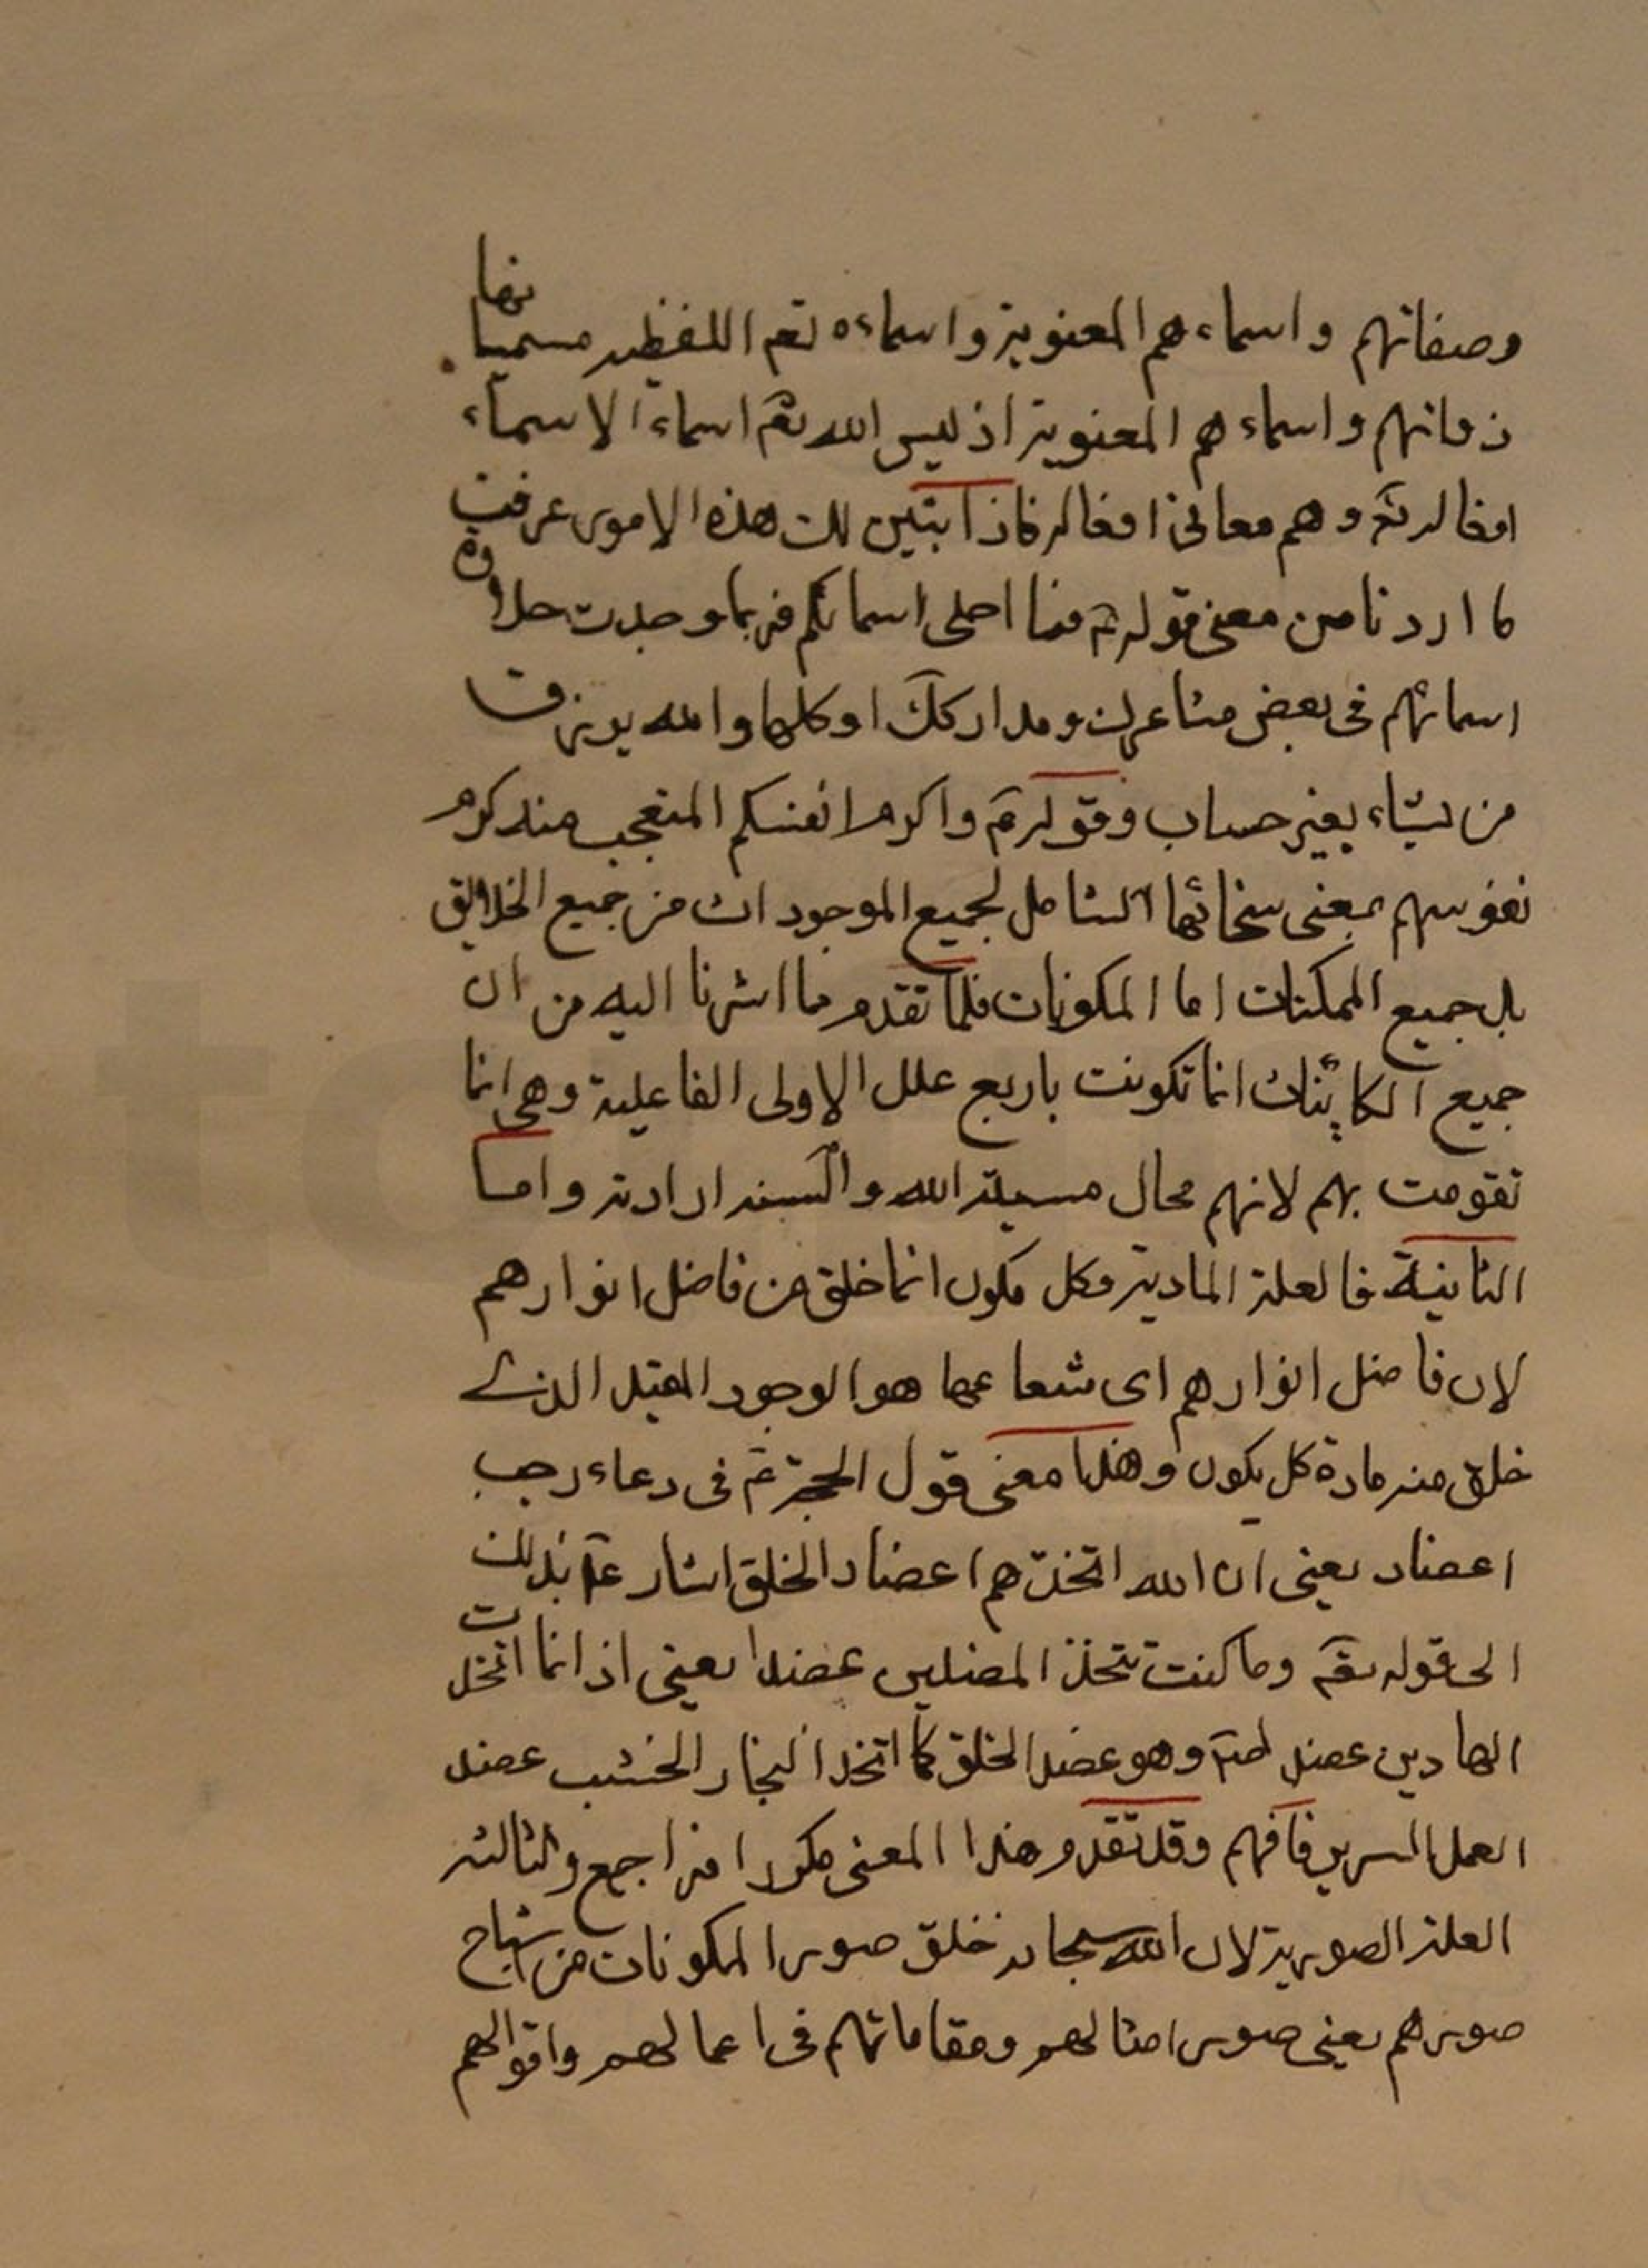 وصفاتهم واسماءهم المعنوية واسماءه تعم اللفظيه مسمياتها
ذواتهم واسماءهم المعنوية اذ ليس الله تعم اسماء الا سماء
افعاله تعم وهم معانى افعاله فاذا تبين لك هذه الامور عرفت
ما اردنا من معنى قوله عم فما احلى اسمائكم فربما وجدت حلاوة
اسمائهم فى بعض مشاعرك ومداركك او كلها والله يرزق
من يشاء بغير حساب وقوله عم واكرم انفسكم المتعجب منه كرم
نفوسهم بمعنى سخائها الشامل لجميع الموجودات من جميع الخلائق
بل جميع الممكنات اما المكونات فلما تقدم مما اشرنا اليه من ان
جميع الكائنات انما تكونت باربع علل الاولى الفاعلية وهى انما
تقومت بهم لانهم محال مشية الله والسنة ارادته واما
الثانية فالعلة المادية وكل مكون انما خلق من فاضل انوارهم
لان فاضل انوارهم اى شعاعها هو الوجود المقيد الذى
خلق منه مادة كل مكون وهذا معنى قول الحجة عم فى دعاء رجب
اعضاد يعنى ان الله اتخذهم اعضادا لخلق اشار عم بذلك
الى قوله تعم وما كنت متخذ المضلين عضدا يعنى اذ انما اتخذت
الهادين عضد لخلقه وهو عضد الخلق كما اتخذ النجار الخشب عضد
العمل السرير فافهم وقد تقدم هذا المعنى مكررا فراجع والثالثه
العلة الصورية لان الله سبحانه خلق صور المكونات من اشباح
صورهم يعنى صور امثالهم ومقاماتهم فى اعمالهم واقوالهم